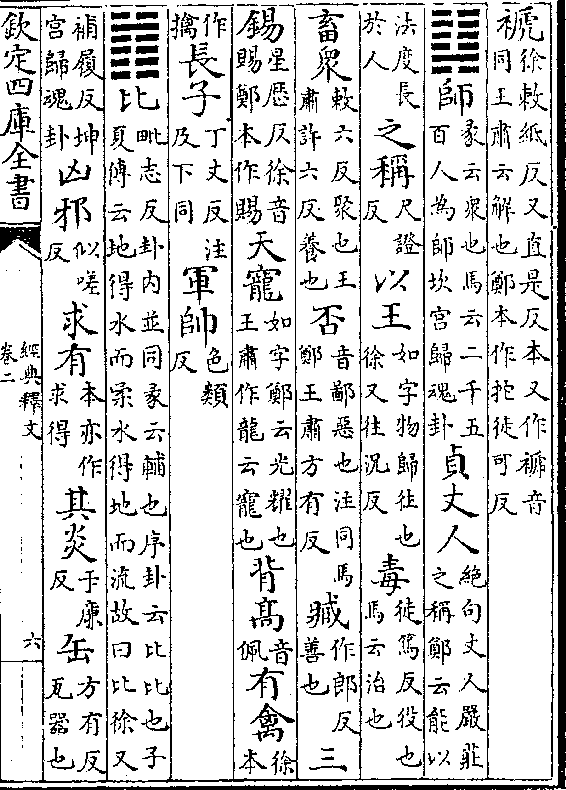 褫徐敕紙反又直是反本又作褫音同王肅云解也鄭本作拕徒可反
䷆師彖云衆也馬云二千五百人為師坎宮歸魂卦貞丈人絶句丈人嚴莊之稱鄭云能以
法度長於人之稱尺證反以王如字物歸往也徐又往況反毒徒篤反役也馬云治也
畜衆敕六反聚也王肅許六反養也否音鄙惡也注同馬鄭王肅方有反臧作郎反善也三
錫星歴反徐音賜鄭本作賜天寵如字鄭云光耀也王肅作龍云寵也背髙音佩有禽徐本
作擒長子丁丈反注及下同軍帥色類反
䷇比毗志反卦内並同彖云輔也序卦云比比也子夏傳云地得水而柔水得地而流故曰比徐又
補履反坤宮歸魂卦凶邪似嗟反求有本亦作求得其炎于廉反缶方有反瓦器也
欽定四庫全書
經典釋文
卷二
六